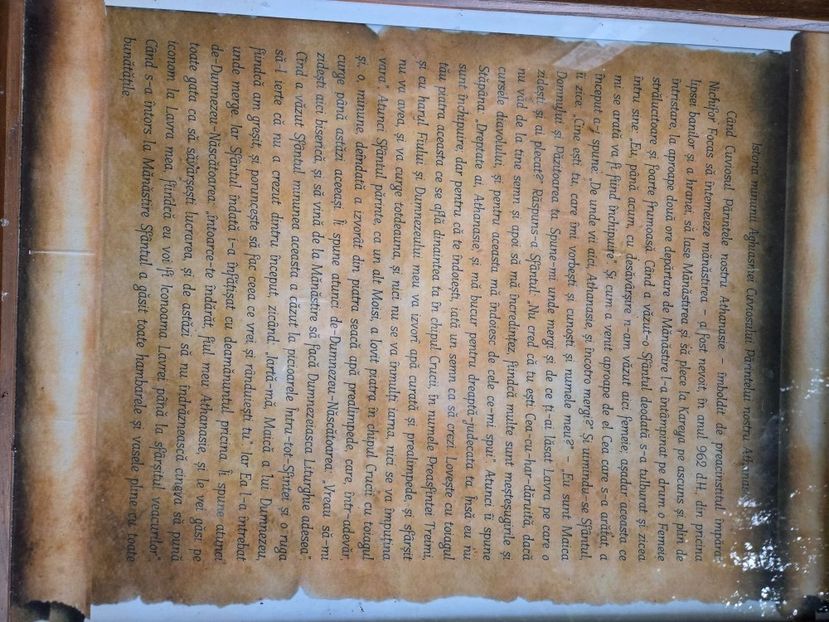 Istoria minunii Aghiasmei Cuviosului Părintelui nostru Athanasie
Când Cuviosul Părintele nostru Athanasie - îmboldit de preacinstitul împărat
Nichifor Focas să întemeieze mănăstirea - a fost nevoit în anul 962 d.H., din pricina
lipsei banilor și a hranei, să lase Mănăstirea și să plece la Kareya pe ascuns și plin de
întristare, la aproape două ore depărtare de Mănăstire l-a întâmpinat pe drum o Femeie
strălucitoare și foarte frumoasă. Când a văzut-o Sfântul deodată s-a tulburat și zicea
întru sine: „Eu, până acum, cu desăvârșire n-am văzut aici femeie, așadar aceasta ce
mi se arată va fi fiind închipuire". Și cum a venit aproape de el Cea care s-a arătat, a
început a-i spune: „De unde vii aici, Athanasie, și încotro mergi?" Și uimindu-se Sfântul,
îi zice: „Cine ești tu, care îmi vorbești și cunoști și numele meu?" - „Eu sunt Maica
Domnului și Păzitoarea ta. Spune-mi unde mergi și de ce ți-ai lăsat Lavra pe care o
zidești și ai plecat?" Răspuns-a Sfântul: „Nu cred că tu ești Cea-cu-har-dăruită, dacă
nu văd de la tine semn și apoi să mă încredințez, fiindcă multe sunt meșteșugirile și
cursele diavolului, și pentru aceasta mă îndoiesc de cele ce-mi spui." Atunci îi spune
Stăpâna: „Dreptate ai, Athanasie, și mă bucur pentru dreaptă-judecata ta. Însă eu nu
sunt închipuire, dar pentru că te îndoiești, iată un semn ca să crezi. Lovește cu toiagul
tău piatra aceasta ce se află dinaintea ta în chipul Crucii, în numele Preasfintei Treimi,
și cu harul Fiului și Dumnezeului meu va izvorî apă curată și prealimpede, și sfârșit
nu va avea, și va curge totdeauna, și nici nu se va înmulți iarna, nici se va împuțina
vara". Atunci Sfântul părinte ca un alt Moisi, a lovit piatra în chipul Crucii cu toiagul
și, o, minune, deîndată a izvorât din piatra seacă apă prealimpede, care, într-adevăr,
curge până astăzi aceeași. Îi spune atunci de-Dumnezeu-Născătoarea: „Vreau să-mi
zidești aici biserică și să vină de la Mănăstire să facă Dumnezeiasca Liturghie adesea".
Cînd a văzut Sfântul minunea aceasta a căzut la picioarele Întru-tot-Sfintei și o ruga
să-l ierte că nu a crezut dintru început, zicând: „Iartă-mă, Maică a lui Dumnezeu,
fiindcă am greșit, și poruncește să fac ceea ce vrei și rânduiești tu." Iar Ea l-a întrebat
unde merge. Iar Sfântul îndată i-a înfățișat cu deamănuntul pricina. Îi spune atunci
de-Dumnezeu-Născătoarea: „Întoarce-te îndărăt, fiul meu Athanasie, și le vei găsi pe
toate gata ca să săvârșești lucrarea, și de astăzi să nu îndrăznească cineva să pună
iconom la Lavra mea, fiindcă eu voi fi Iconoama Lavrei până la sfârșitul veacurilor".
Când s-a întors la Mănăstire Sfântul a găsit toate hambarele și vasele pline cu toate
bunătățile.